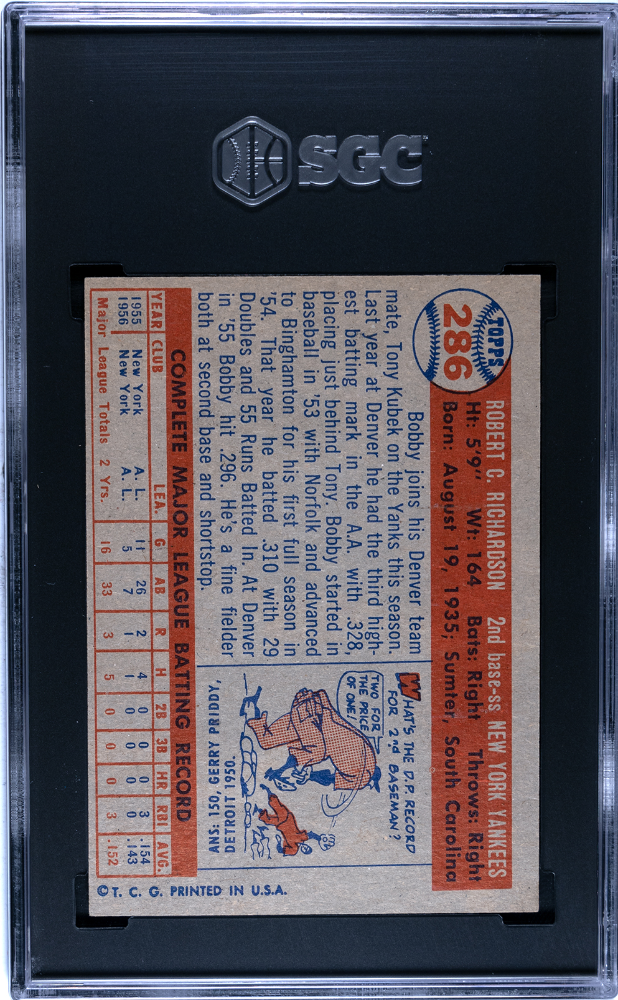 SGC
TOPPS
286
ROBERT C. RICHARDSON 2nd base-ss NEW YORK YANKEES
Ht: 5'9" Wt: 164 Bats: Right Throws: Right
Born: August 19, 1935; Sumter, South Carolina
Bobby joins his Denver team
mate, Tony Kubek on the Yanks this season.
Last year at Denver he had the third high-
est batting mark in the A.A. with .328,
placing just behind Tony. Bobby started in
baseball in '53 with Norfolk and advanced
to Binghamton for his first full season in
'54. That year he batted .310 with 29
Doubles and 55 Runs Batted In. At Denver
in '55 Bobby hit .296. He's a fine fielder
both at second base and shortstop.
WHAT'S THE D.P. RECORD
FOR 2nd BASEMAN?
TWO FOR
THE PRICE
OF ONE!
ANS: 150, GERRY PRIDDY,
DETROIT 1950.
COMPLETE MAJOR LEAGUE BATTING RECORD
YEAR CLUB LEA. G AB R H 2B 3B HR RBI AVG.
1955 New York A. L. 11 26 2 4 0 0 0 3 .154
1956 New York A. L. 5 7 1 1 0 0 0 0 .143
Major League Totals 2 Yrs. 16 33 3 5 0 0 0 3 .152
© T. C. G. PRINTED IN U.S.A.